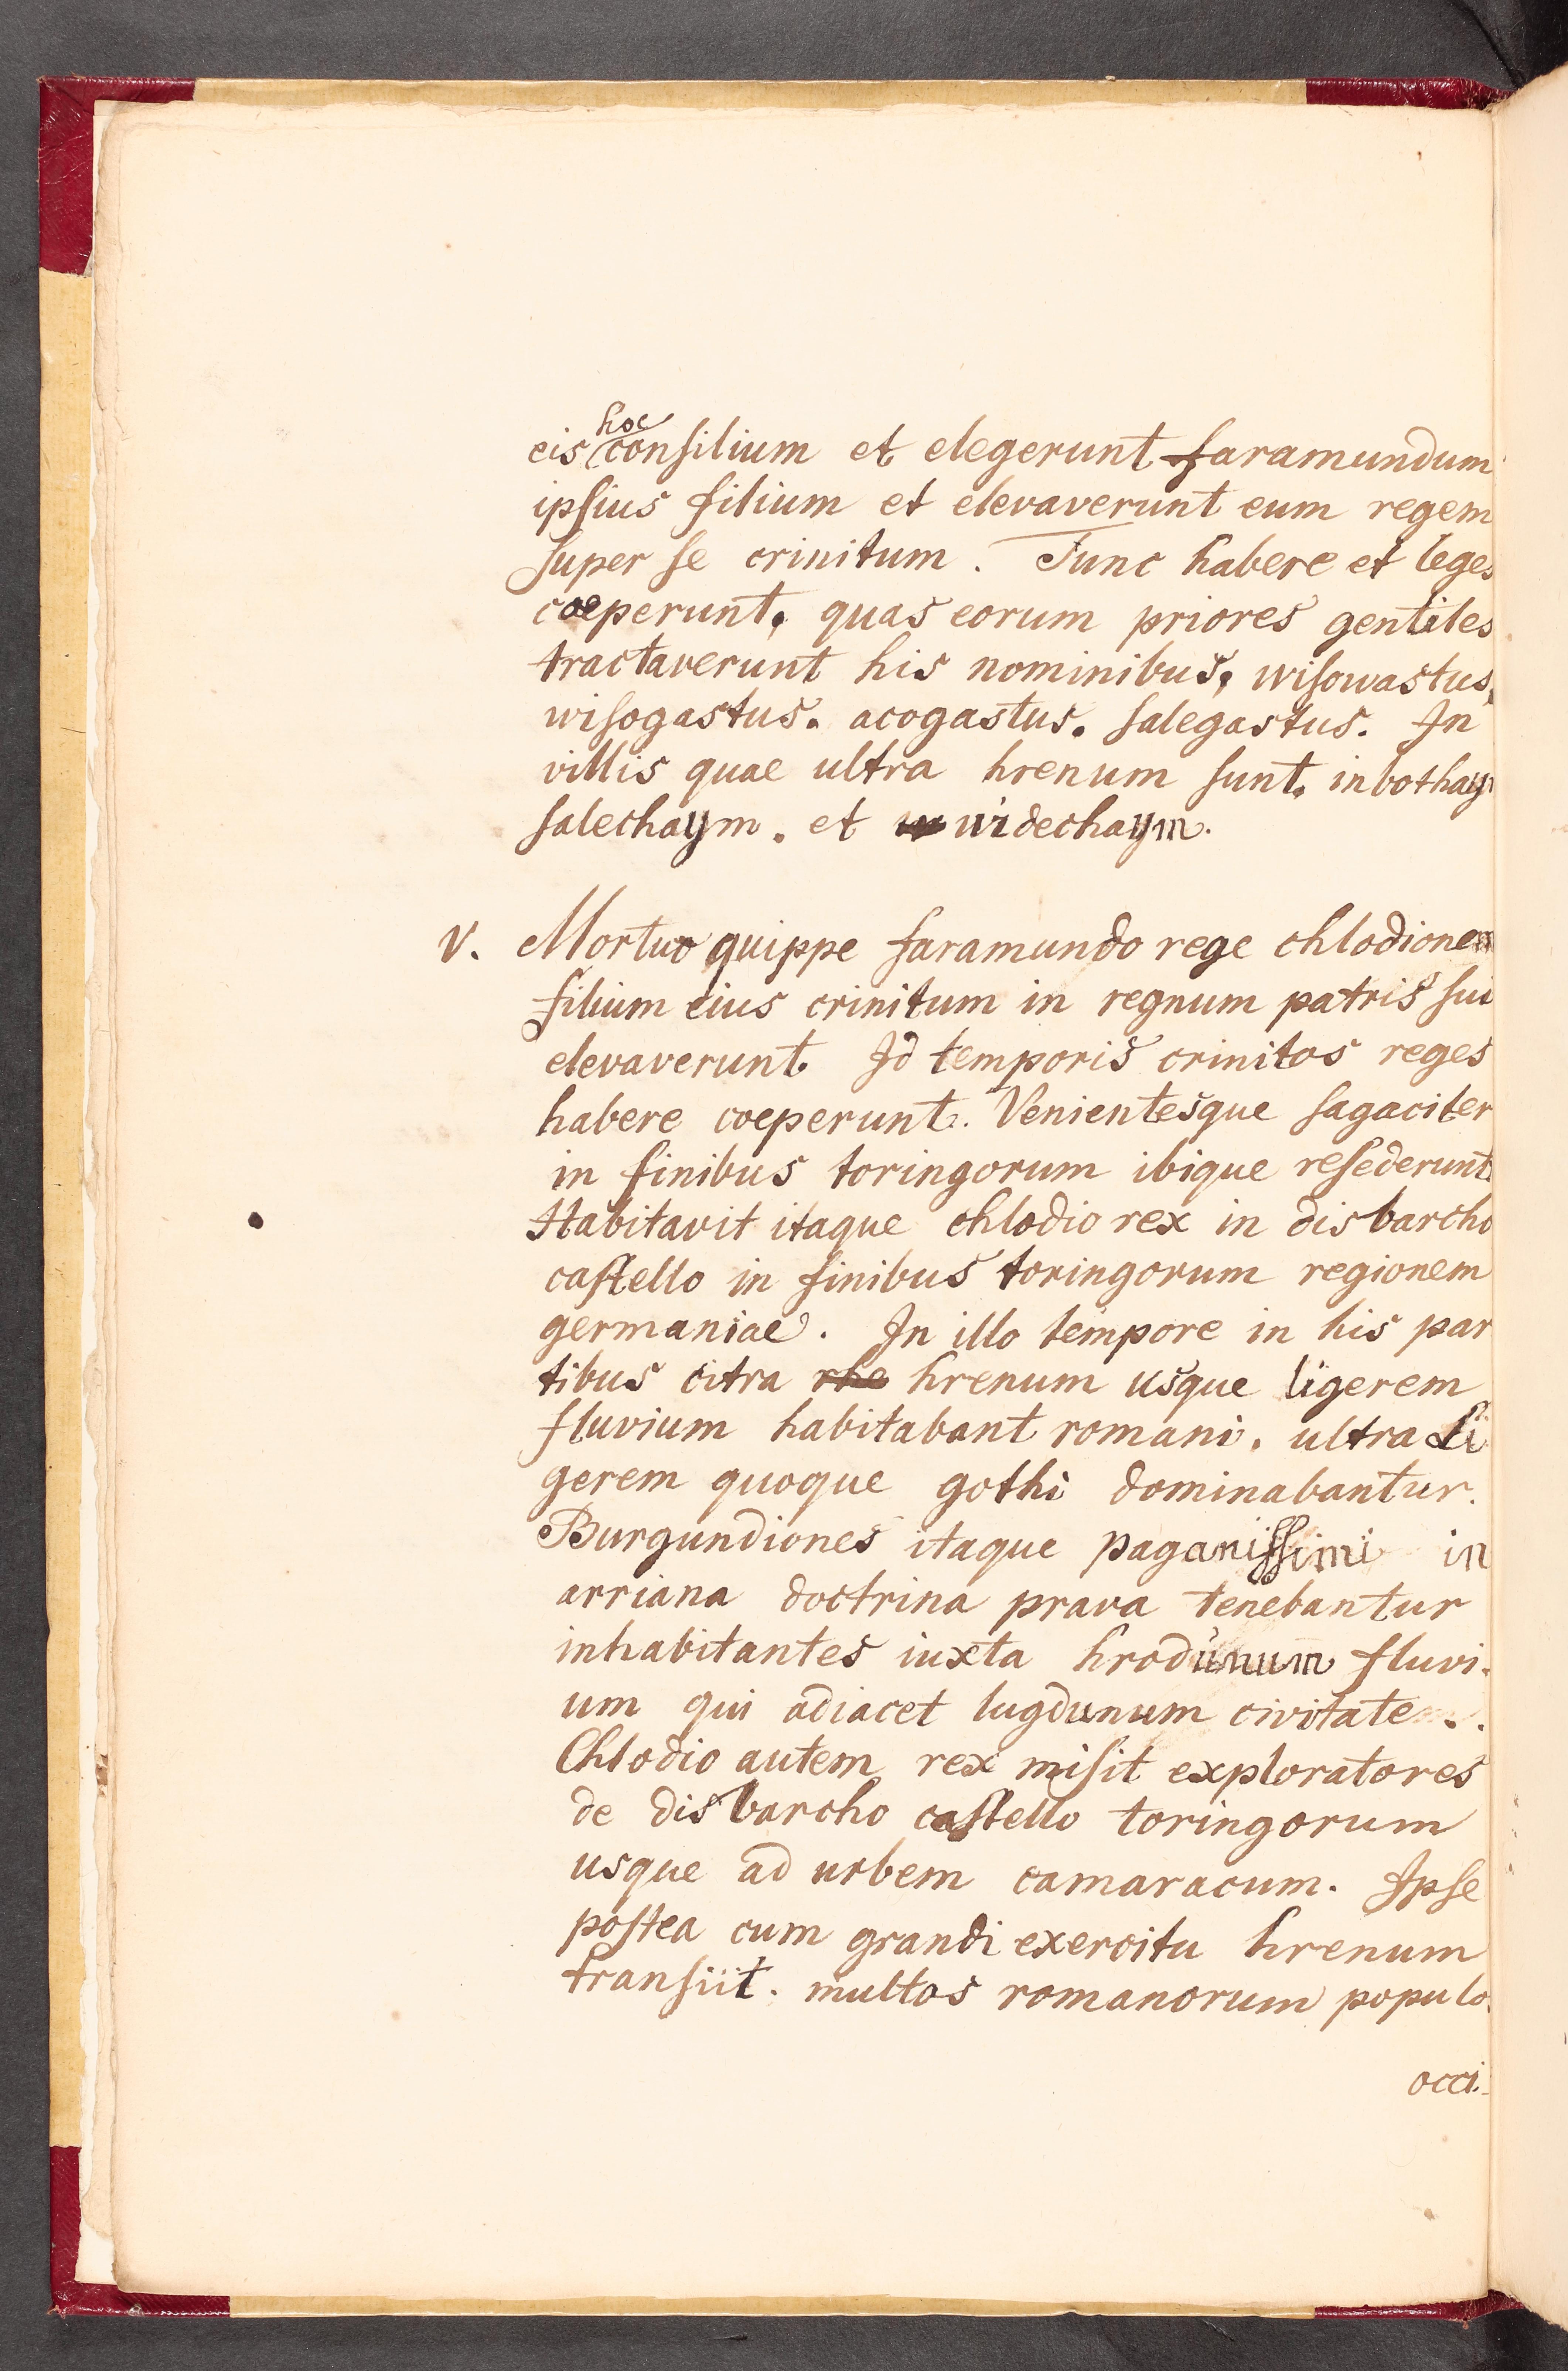 hoc
eis consilium et elegerunt faramundum
ipsius filium et elevaverunt eum regem
super se crinitum. Tunc habere et leges
coeperunt, quas eorum priores gentiles
tractaverunt his nominibus, wisowastus,
wisogastus. acogastus. salegastus. In
villis quae ultra hrenum sunt. inbothaym
salechaym. et widechaym.
V. Mortuo quippe faramundo rege chlodionem
filium eius crinitum in regnum patris sui
elevaverunt. Id temporis crinitos reges
habere coeperunt. Venientesque sagaciter
in finibus toringorum ibique resederunt.
Habitavit itaque chlodio rex in disbarcho
castello in finibus toringorum regionem
germaniae. In illo tempore in his par
tibus citra rhe hrenum usque ligerem
fluvium habitabant romani. ultra Li
gerem quoque gothi dominabantur.
Burgundiones itaque paganissimi in
arriana doctrina prava tenebantur
inhabitantes iuxta hrodunum fluvi-
um qui adiacet lugdunum civitatem.
Chlodio autem rex misit exploratores
de disbarcho castello toringorum
usque ad urbem camaracum. Ipse
postea cum grandi exercitu hrenum
transiit. multos romanorum populo
occi-